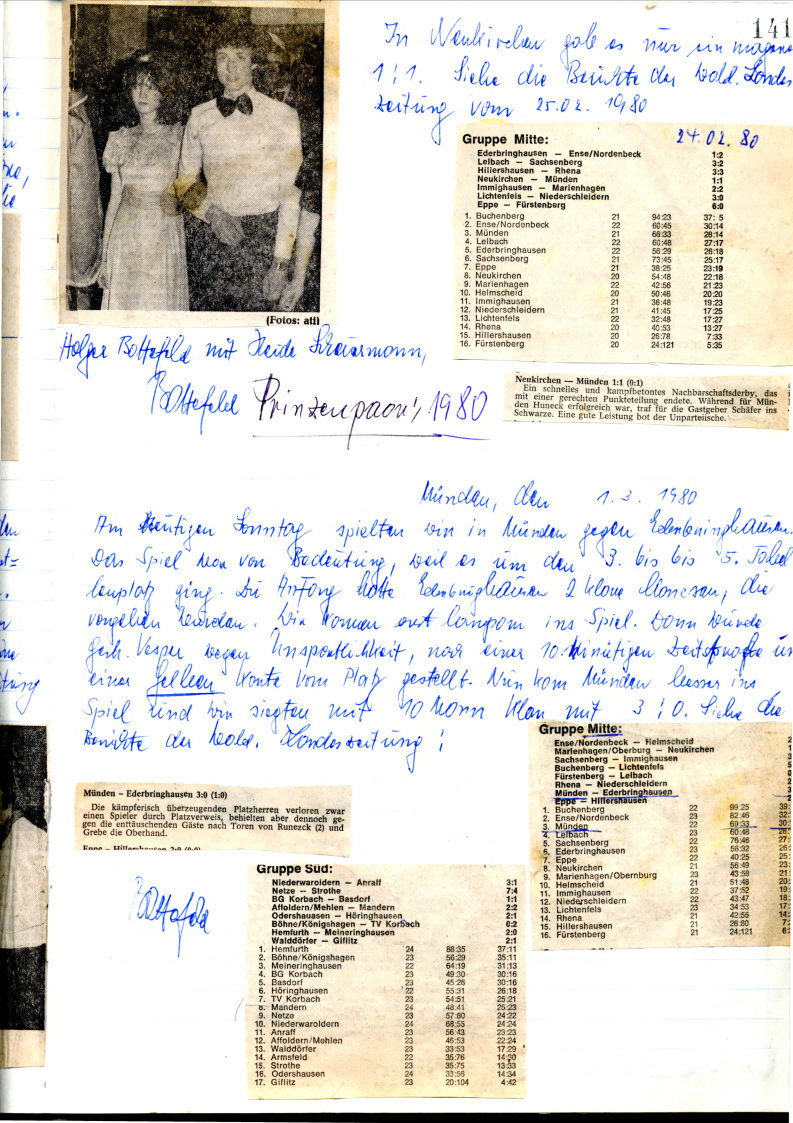 141
In Neukirchen gab es nur ein mageres
1:1. Siehe die Berichte der Wald. Landes
zeitung vom 25.02.1980
24.02.80
Gruppe Mitte:
Ederbringhausen — Ense/Nordenbeck 1:2
Lelbach — Sachsenberg 3:2
Hillershausen — Rhena 3:3
Neukirchen — Münden 1:1
Immighausen — Marienhagen 2:2
Lichtenfels — Niederschleidern 3:0
Eppe — Fürstenberg 6:0
1. Buchenberg 21 94:23 37: 5
2. Ense/Nordenbeck 22 60:45 30:14
3. Münden 21 66:33 28:14
4. Lelbach 22 60:48 27:17
5. Ederbringhausen 22 56:29 26:18
6. Sachsenberg 21 73:45 25:17
7. Eppe 21 38:25 23:19
8. Neukirchen 20 54:48 22:18
9. Marienhagen 22 42:56 21:23
10. Helmscheid 20 50:46 20:20
11. Immighausen 21 36:48 19:23
12. Niederschleidern 21 41:45 17:25
13. Lichtenfels 22 32:48 17:27
14. Rhena 20 40:53 13:27
15. Hillershausen 20 26:78 7:33
16. Fürstenberg 20 24:121 5:35
(Fotos: atf)
Holger Bottefeld mit Heide Scheuermann,
Bottefeld Prinzenpaar, 1980
Neukirchen — Münden 1:1 (0:1)
Ein schnelles und kampfbetontes Nachbarschaftsderby, das
mit einer gerechten Punkteteilung endete. Während für Mün-
den Huneck erfolgreich war, traf für die Gastgeber Schäfer ins
Schwarze. Eine gute Leistung bot der Unparteiische.
Münden, den 1.3.1980
Am heutigen Sonntag spielten wir in Münden gegen Ederbringhausen.
Das Spiel war von Bedeutung, weil es um den 3. bis bis 5. Tabel
lenplatz ging. Zu Anfang hatte Ederbringhausen 2 klare Chancen, die
vergeben wurden. Wir kamen erst langsam ins Spiel. Dann wurde
Gerh. Vesper wegen Unsportlichkeit, nach einer 10-minütigen Zeitstrafe un
einer gelben Karte vom Platz gestellt. Nun kam Münden besser ins
Spiel und wir siegten mit 10 Mann klar mit 3:0. Siehe die
Berichte der Wald. Landeszeitung!
Gruppe Mitte:
Ense/Nordenbeck — Helmscheid 2
Marienhagen/Oberburg — Neukirchen 1
Sachsenberg — Immighausen 3
Buchenberg — Lichtenfels 5
Fürstenberg — Lelbach 0
Rhena — Niederschleidern 2
Münden — Ederbringhausen 3
Eppe — Hillershausen 2
1. Buchenberg 22 99:25 39:
2. Ense/Nordenbeck 23 82:46 32:
3. Münden 22 69:33 30:
4. Lelbach 23 60:48 28:
5. Sachsenberg 22 76:46 27:
6. Ederbringhausen 23 56:32 26:
7. Eppe 22 40:25 25:
8. Neukirchen 21 56:49 23:
9. Marienhagen/Obernburg 23 43:58 21:
10. Helmscheid 21 51:48 20:
11. Immighausen 22 37:52 19:
12. Niederschleidern 22 43:47 18:
13. Lichtenfels 23 34:53 17:
14. Rhena 21 42:55 14:
15. Hillershausen 21 26:80 7:
16. Fürstenberg 21 24:121 6:
Münden – Ederbringhausen 3:0 (1:0)
Die kämpferisch überzeugenden Platzherren verloren zwar
einen Spieler durch Platzverweis, behielten aber dennoch ge-
gen die enttäuschenden Gäste nach Toren von Runezck (2) und
Grebe die Oberhand.
Eppe – Hillershausen 2:0 (0:0)
Bottefeld
Gruppe Süd:
Niederwaroldern — Anraff 3:1
Netze — Strothe 7:4
BG Korbach — Basdorf 1:1
Affoldern/Mehlen — Mandern 2:2
Odershausen — Höringhausen 2:1
Böhne/Königshagen — TV Korbach 0:2
Hemfurth — Meineringhausen 2:0
Walddörfer — Giflitz 2:1
1. Hemfurth 24 88:35 37:11
2. Böhne/Königshagen 23 56:29 35:11
3. Meineringhausen 22 64:19 31:13
4. BG Korbach 23 49:30 30:16
5. Basdorf 23 45:26 30:16
6. Höringhausen 22 55:31 26:18
7. TV Korbach 23 54:51 25:21
8. Mandern 24 48:41 25:23
9. Netze 23 57:60 24:22
10. Niederwaroldern 24 68:55 24:24
11. Anraff 23 56:43 23:23
12. Affoldern/Mehlen 23 46:53 22:24
13. Walddörfer 23 33:53 17:29
14. Armsfeld 22 35:76 14:30
15. Strothe 23 35:75 13:33
16. Odershausen 24 33:56 14:34
17. Giflitz 23 20:104 4:42